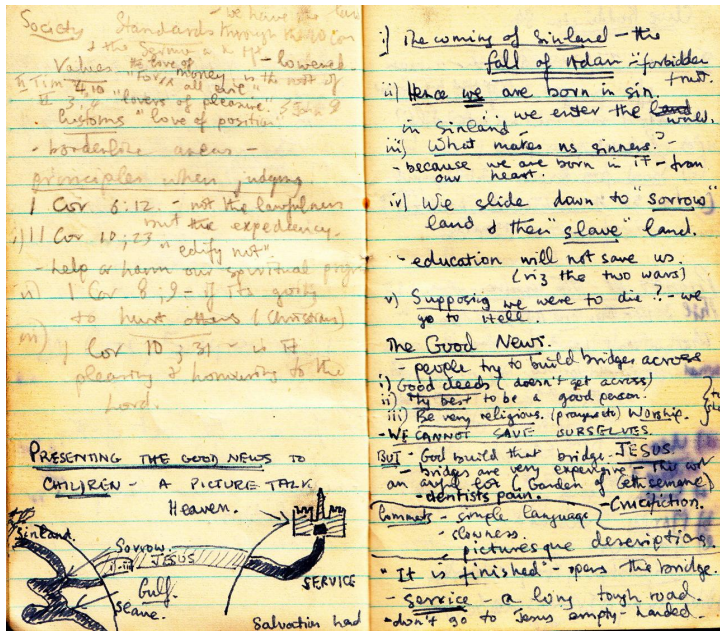 Society - we have the law
Standards through the 10 Com
& the Sermon on the Mt
Values - lowered.
"the love of
money is the root of
II Tim 4,10 all evil"
II 3, 4 "lovers of pleasure"
. Customs "love of position"
- borderline areas -
principles when judging.
1 Cor 6:12. - not the lawfulness
but the expediency.
i) 11 Cor 10; 23 "edify not"
- help or harm our spiritual
ii) 1 Cor. 8; 9 - if its going
to hurt others (Christians)
iii) 1 Cor 10; 31 - is it
pleasing & honouring to the
Lord.
PRESENTING THE GOOD NEWS TO
CHILDREN - A PICTURE TALK
Heaven.
Sinland.
Sorrow.
JESUS
Gulf.
Slave.
SERVICE
Salvation had
i) The coming of Sinland - the
fall of Adam - forbidden
fruit.
ii) Hence we are born in sin.
in sinland ... we enter the land world.
iii) What makes us sinners? -
- because we are born in it - from
our heart.
iv) We slide down to "sorrow"
land & then "slave" land.
- education will not save us.
(viz the two wars)
v) Supposing we were to die? - we
go to Hell.
The Good News.
- people try to build bridges across
i) Good deeds (doesn't get across)
ii) Try best to be a good person.
iii) Be very religious. (prayers etc) Worship.
- WE CANNOT SAVE OURSELVES.
BUT - God build that bridge - JESUS.
- bridges are very expensive - This cost
an awful lot (Garden of Gethsemane)
- dentists pain. - Crucifiction.
Comments - simple language
- slowness.
- picturesque descriptions.
"It is finished" - opens the bridge.
- Service - a long tough road.
- don't go to Jesus empty-handed.